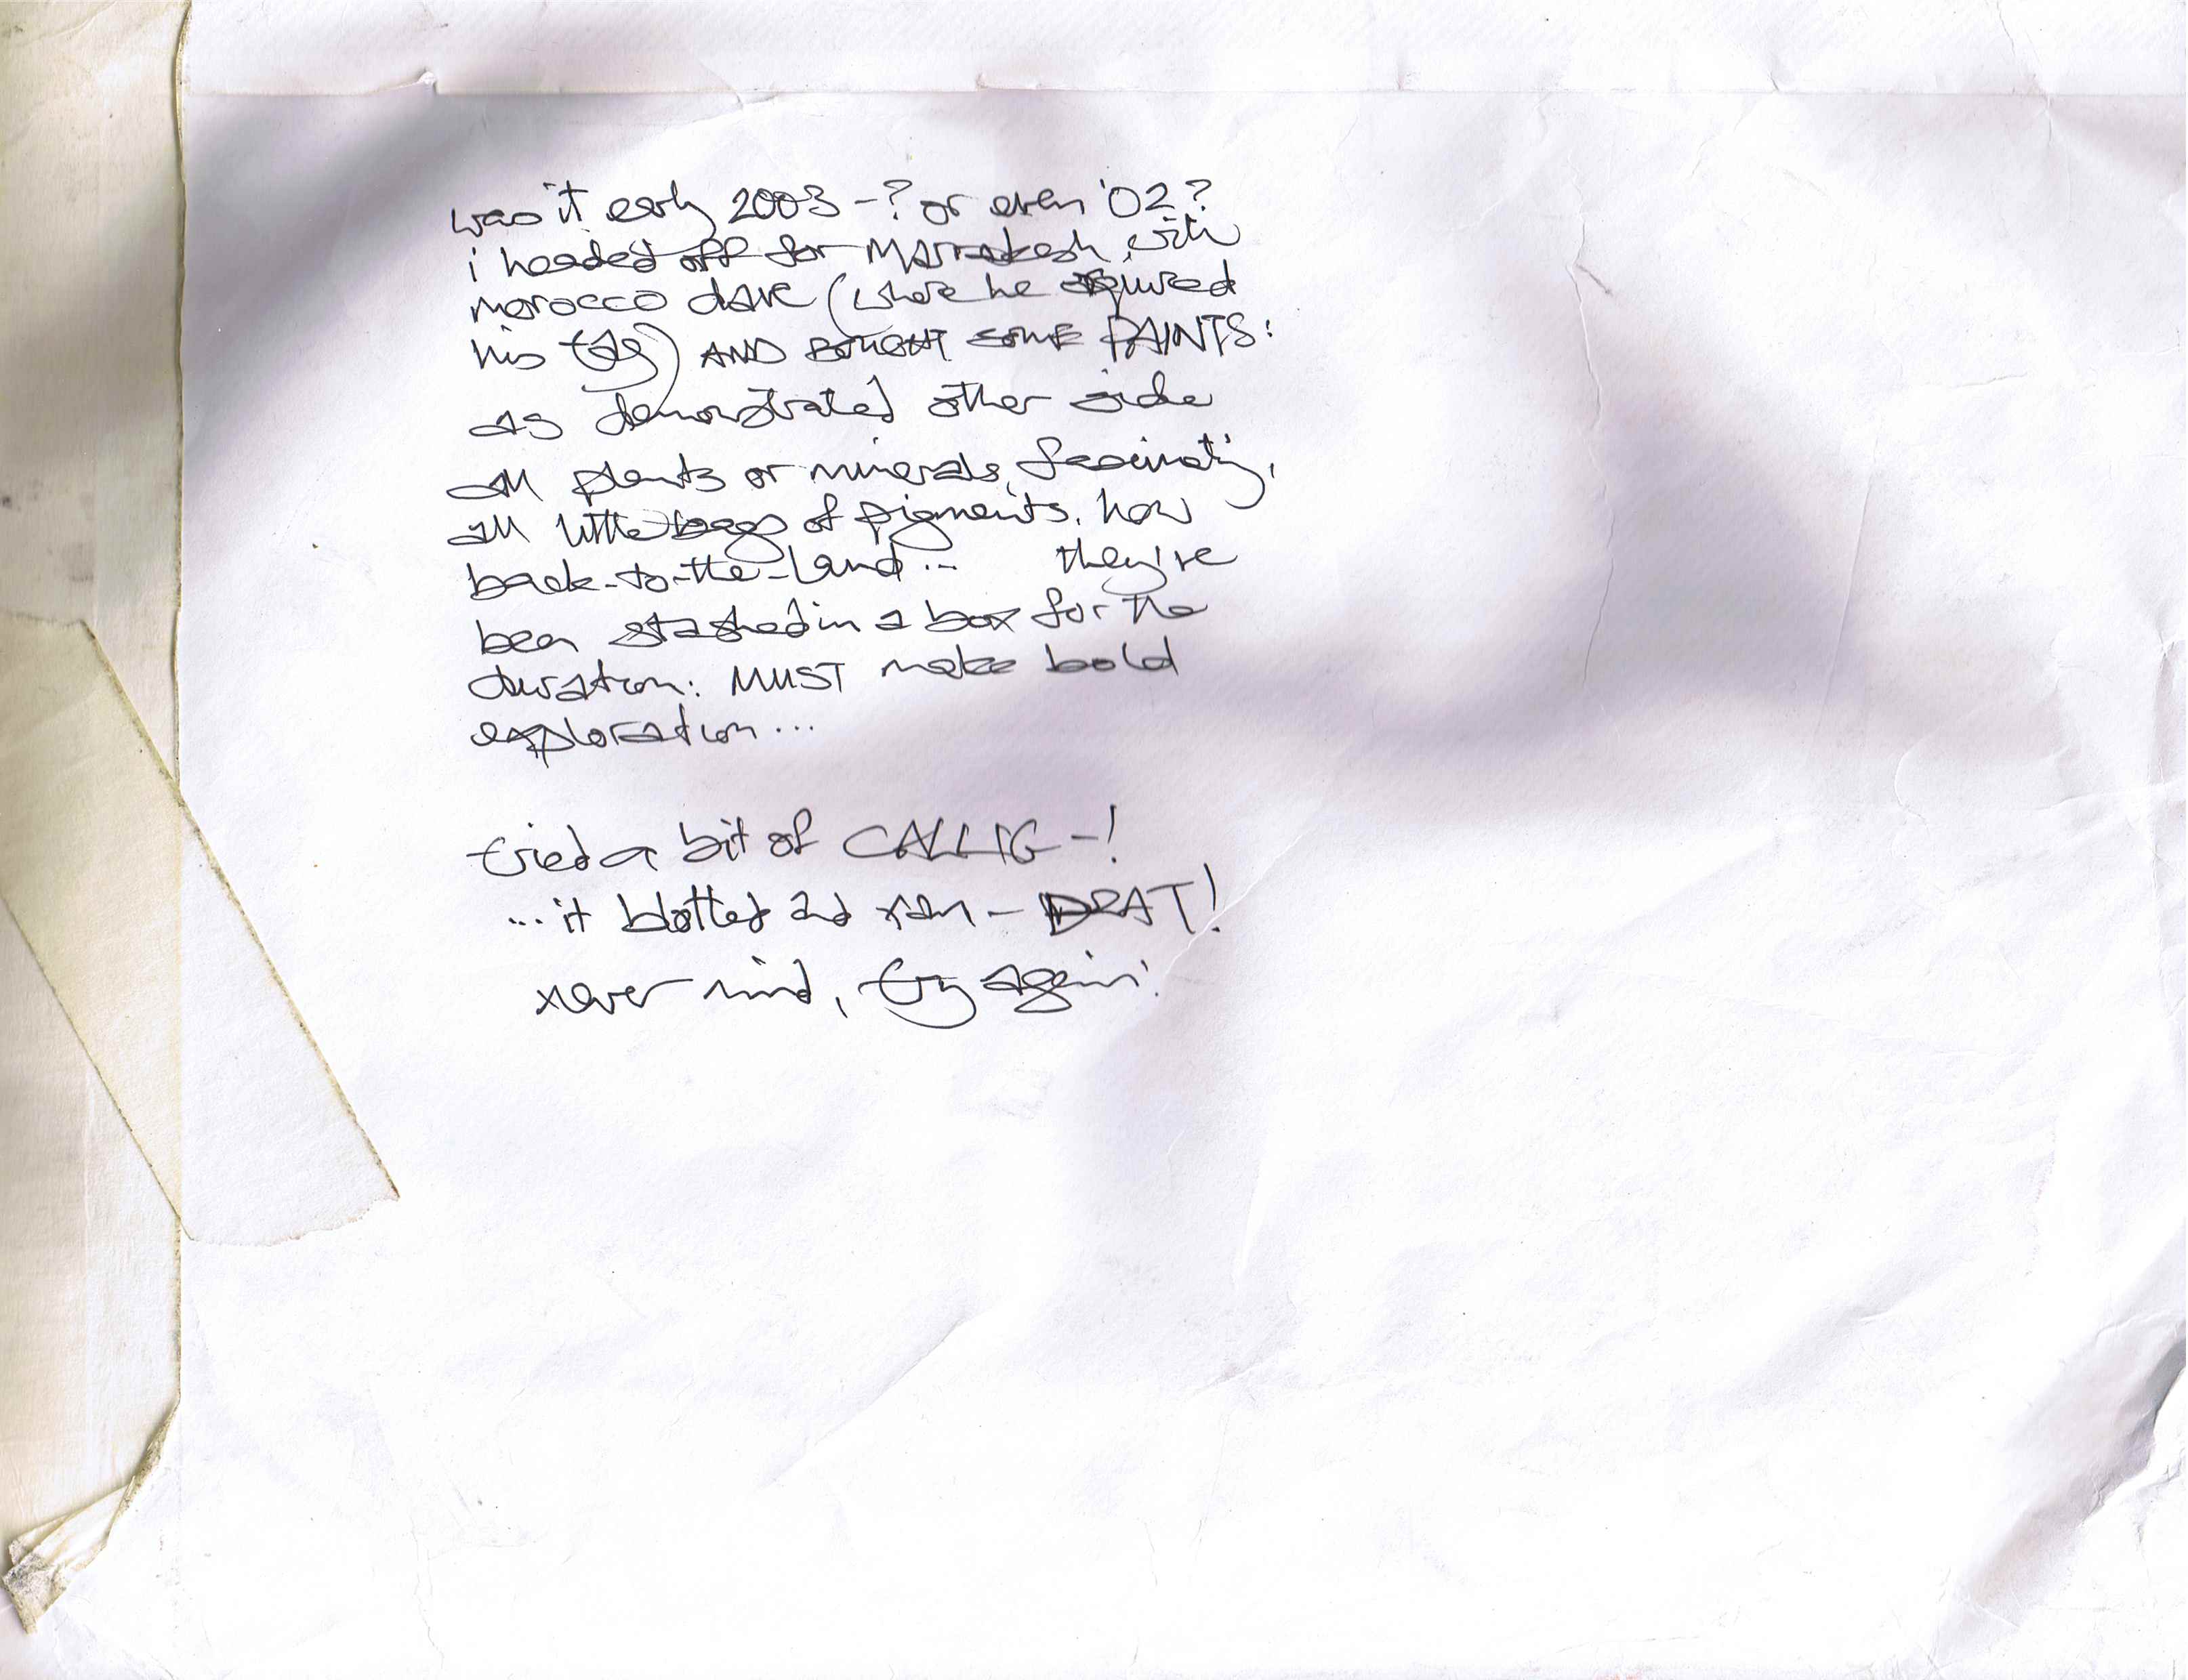 was it early 2003 -? or even '02?
i headed off for Marrakesh with
morocco dave (where he acquired
his tag) AND BOUGHT SOME PAINTS:
as demonstrated other side
all plants or minerals, fascinating,
all little bags of pigments. how
back-to-the-land... they've
been stashed in a box for the
duration: MUST make bold
exploration...
tried a bit of CALLIG-!
...it blotted and ran - DRAT!
never mind, try again!